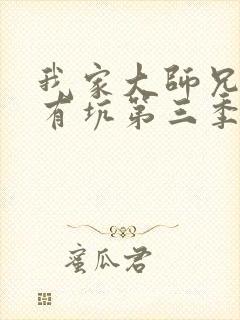 我家大师兄
有坑第三季
蜜瓜君